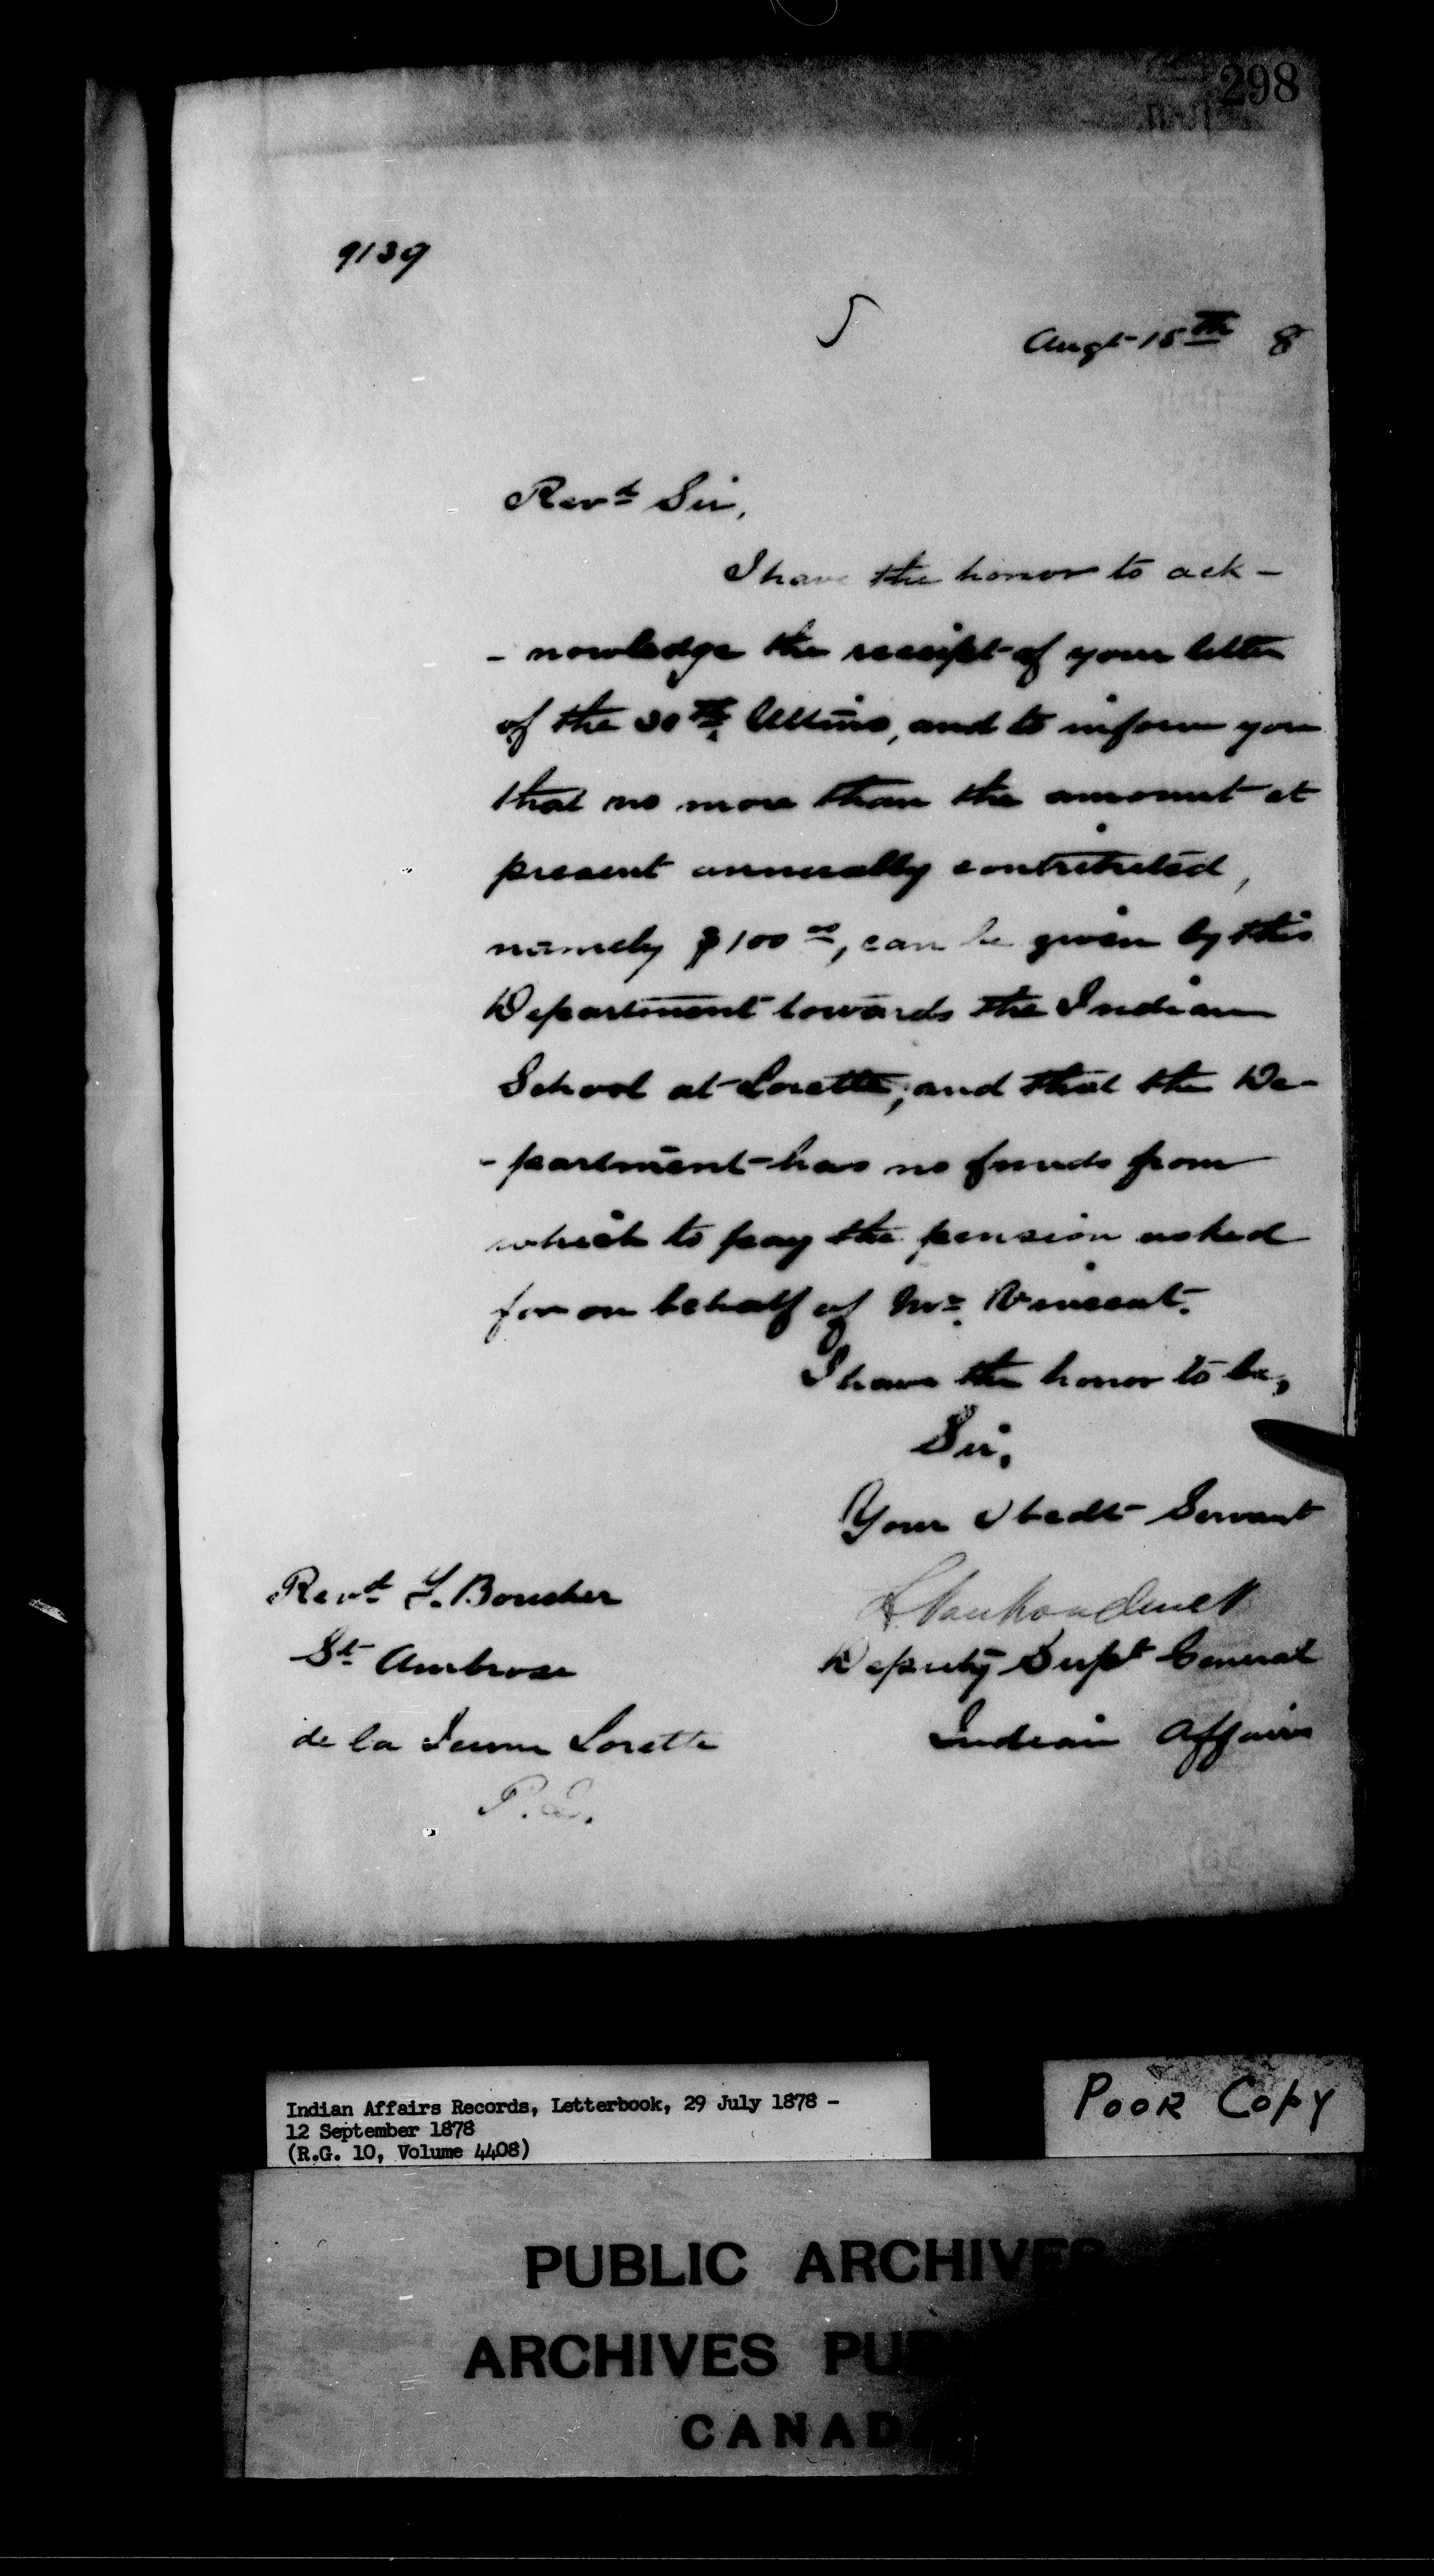 298
9139
Augt 15th 8
Revd Sir,
I have the honor to ack-
-nowledge the receipt of your letter
of the 30th Ultimo, and to inform you
that no more than the amount at
present annually contributed,
namely $100 00, can be given by this
Department towards the Indian
School at Lorette, and that the De-
-partment has no funds from
which to pay the pension asked
for on behalf of Mr. Vincent.
I have the honor to be,
Sir,
Your Obedt Servant
Revd Boucher
L. Vankoughnet
St Ambrose
Deputy Supt General
de la Jeune Lorette
Indian Affairs
P.Q.
Indian Affairs Records, Letterbook, 29 July 1878 -
12 September 1878
(R.G. 10, Volume 4408)
POOR COPY
PUBLIC ARCHIVES
ARCHIVES PU
CANAD